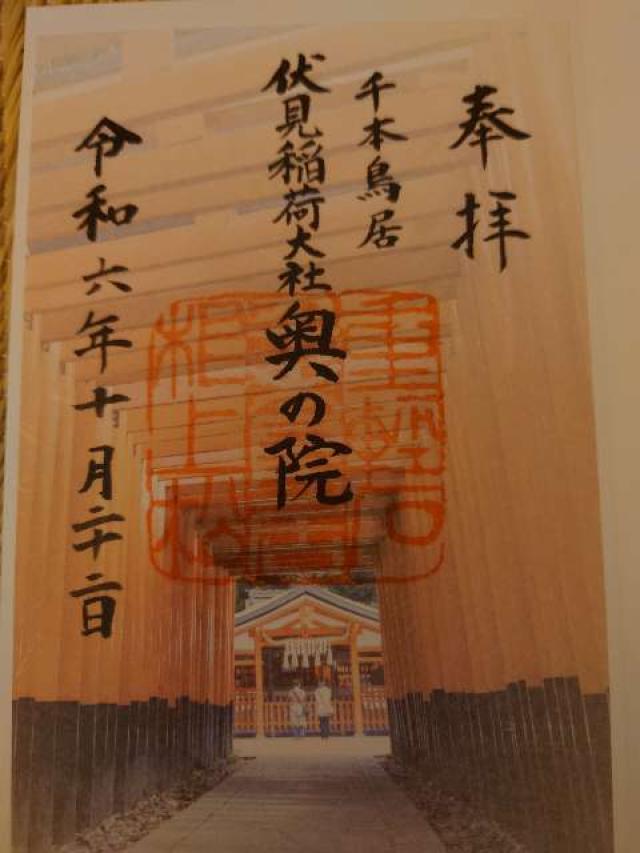 奉拝
千本鳥居
伏見稲荷大社奥の院
令和六年十月二十二日